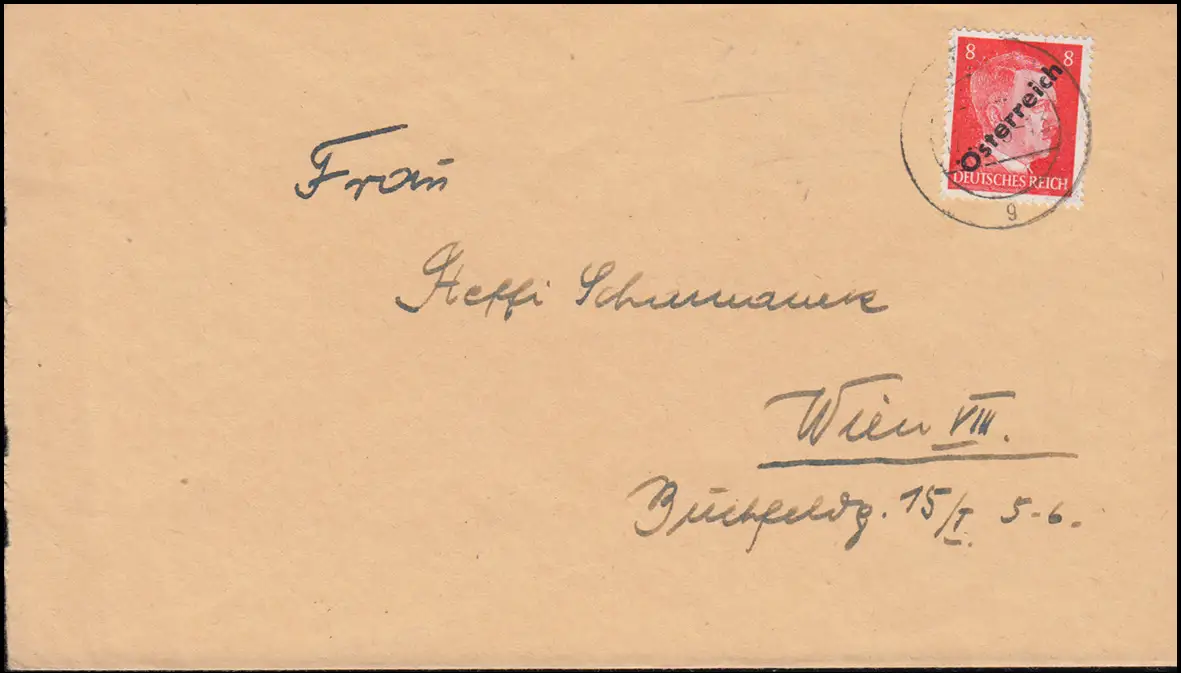 8 8
Österreich
DEUTSCHES REICH
g
Frau
Steffi
Wien VIII.
Buchfeldg. 15/I. 5-6.